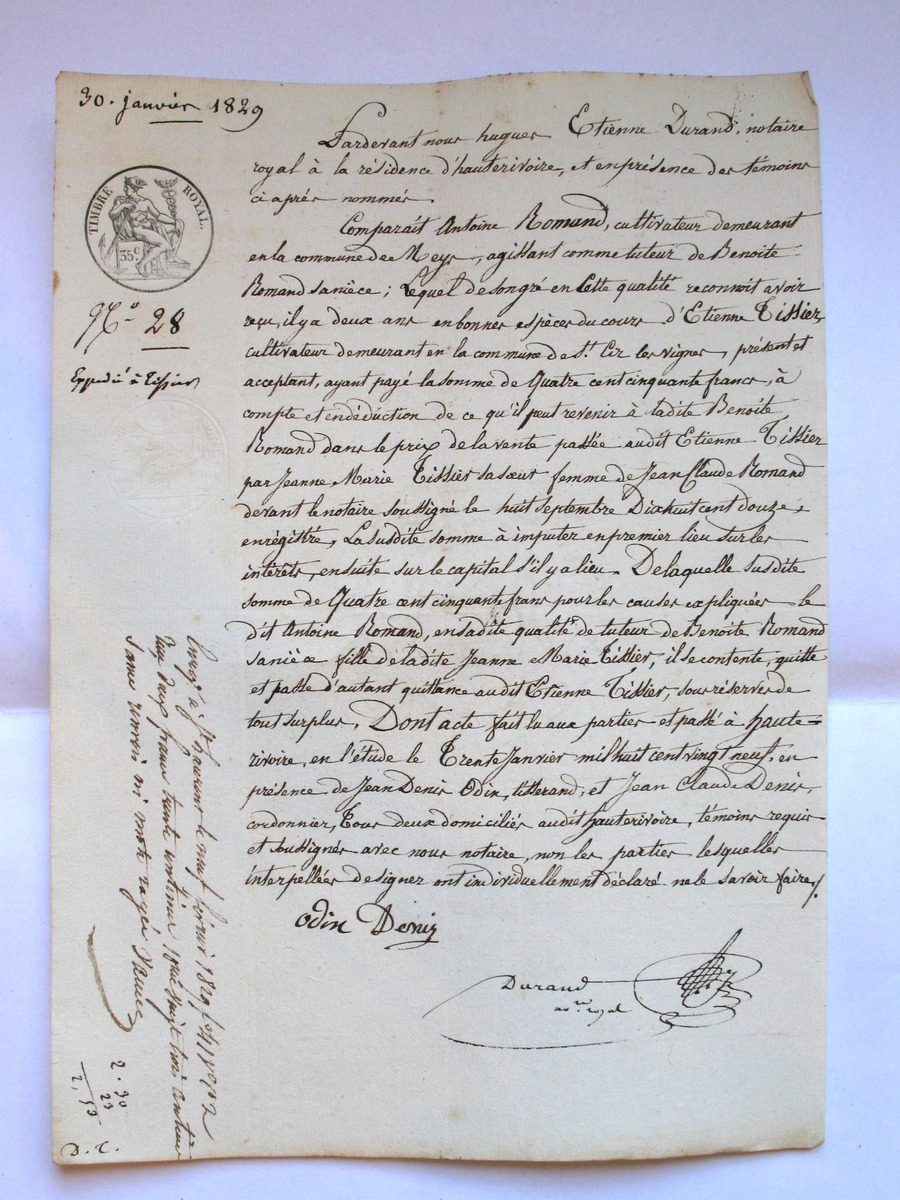 30. janvier 1829
TIMBRE ROYAL.
35 c
N.º 28
Expédié à Tissier
Pardevant nous hugues Etienne Durand, notaire
royal à la résidence d'hauterivoire, et en présence des témoins
ci après nommés.
Comparait Antoine Romand, cultivateur demeurant
en la commune de Meys, agissant comme tuteur de Benoite
Romand sa nièce; Lequel de son gré en Cette qualité reconnoit avoir
reçu, il y a deux ans en bonnes espèces du cours d'Etienne Tissier,
cultivateur demeurant en la commune de St. Cir les vignes, présent et
acceptant, ayant payé la somme de Quatre cent cinquante francs, à
compte et en déduction de ce qu'il peut revenir à ladite Benoite
Romand dans le prix de la vente passée audit Etienne Tissier
par Jeanne Marie Tissier sa sœur femme de Jean Claude Romand
devant le notaire soussigné le huit septembre Dix huit cent douze,
enrégistré, La susdite somme à imputer en premier lieu sur les
intérêts, ensuite sur le capital s'il y a lieu. De laquelle susdite
somme de Quatre cent cinquante francs pour les causes expliquées le
dit Antoine Romand, en sadite qualité de tuteur de Benoite Romand
sa nièce fille de ladite Jeanne Marie Tissier, il se contente, quitte
et passe d'autant quittance audit Etienne Tissier, sous réserves de
tout surplus. Dont acte fait lu aux parties et passé à haute=
rivoire, en l'étude le Trente Janvier mil huit cent vingt neuf, en
présence de Jean Denis Odin, tisserand, et Jean Claude Denis,
cordonnier, Tous deux domiciliés audit hauterivoire, témoins requis
et soussignés avec nous notaire, non les parties lesquelles
interpellées de signer ont individuellement déclaré ne le savoir faire./.
Odin Denis
Durand
no.re royal
Enreg. à St Laurent le neuf février 1829
deux francs trente centimes
sans renvoi ni mot rayé
2. 30
23
2, 53
D. T.